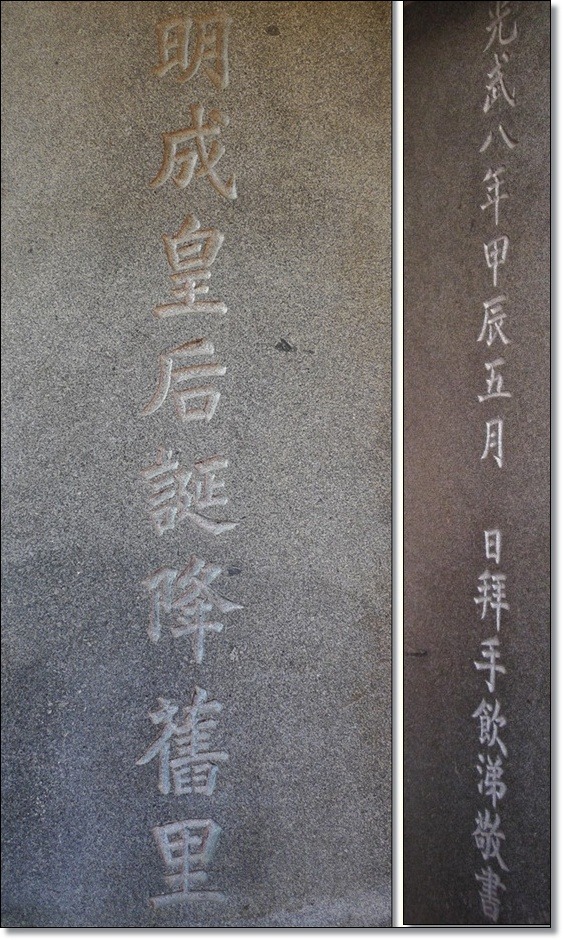 明成皇后誕降舊里
光武八年甲辰五月 日拜手飮涕敬書